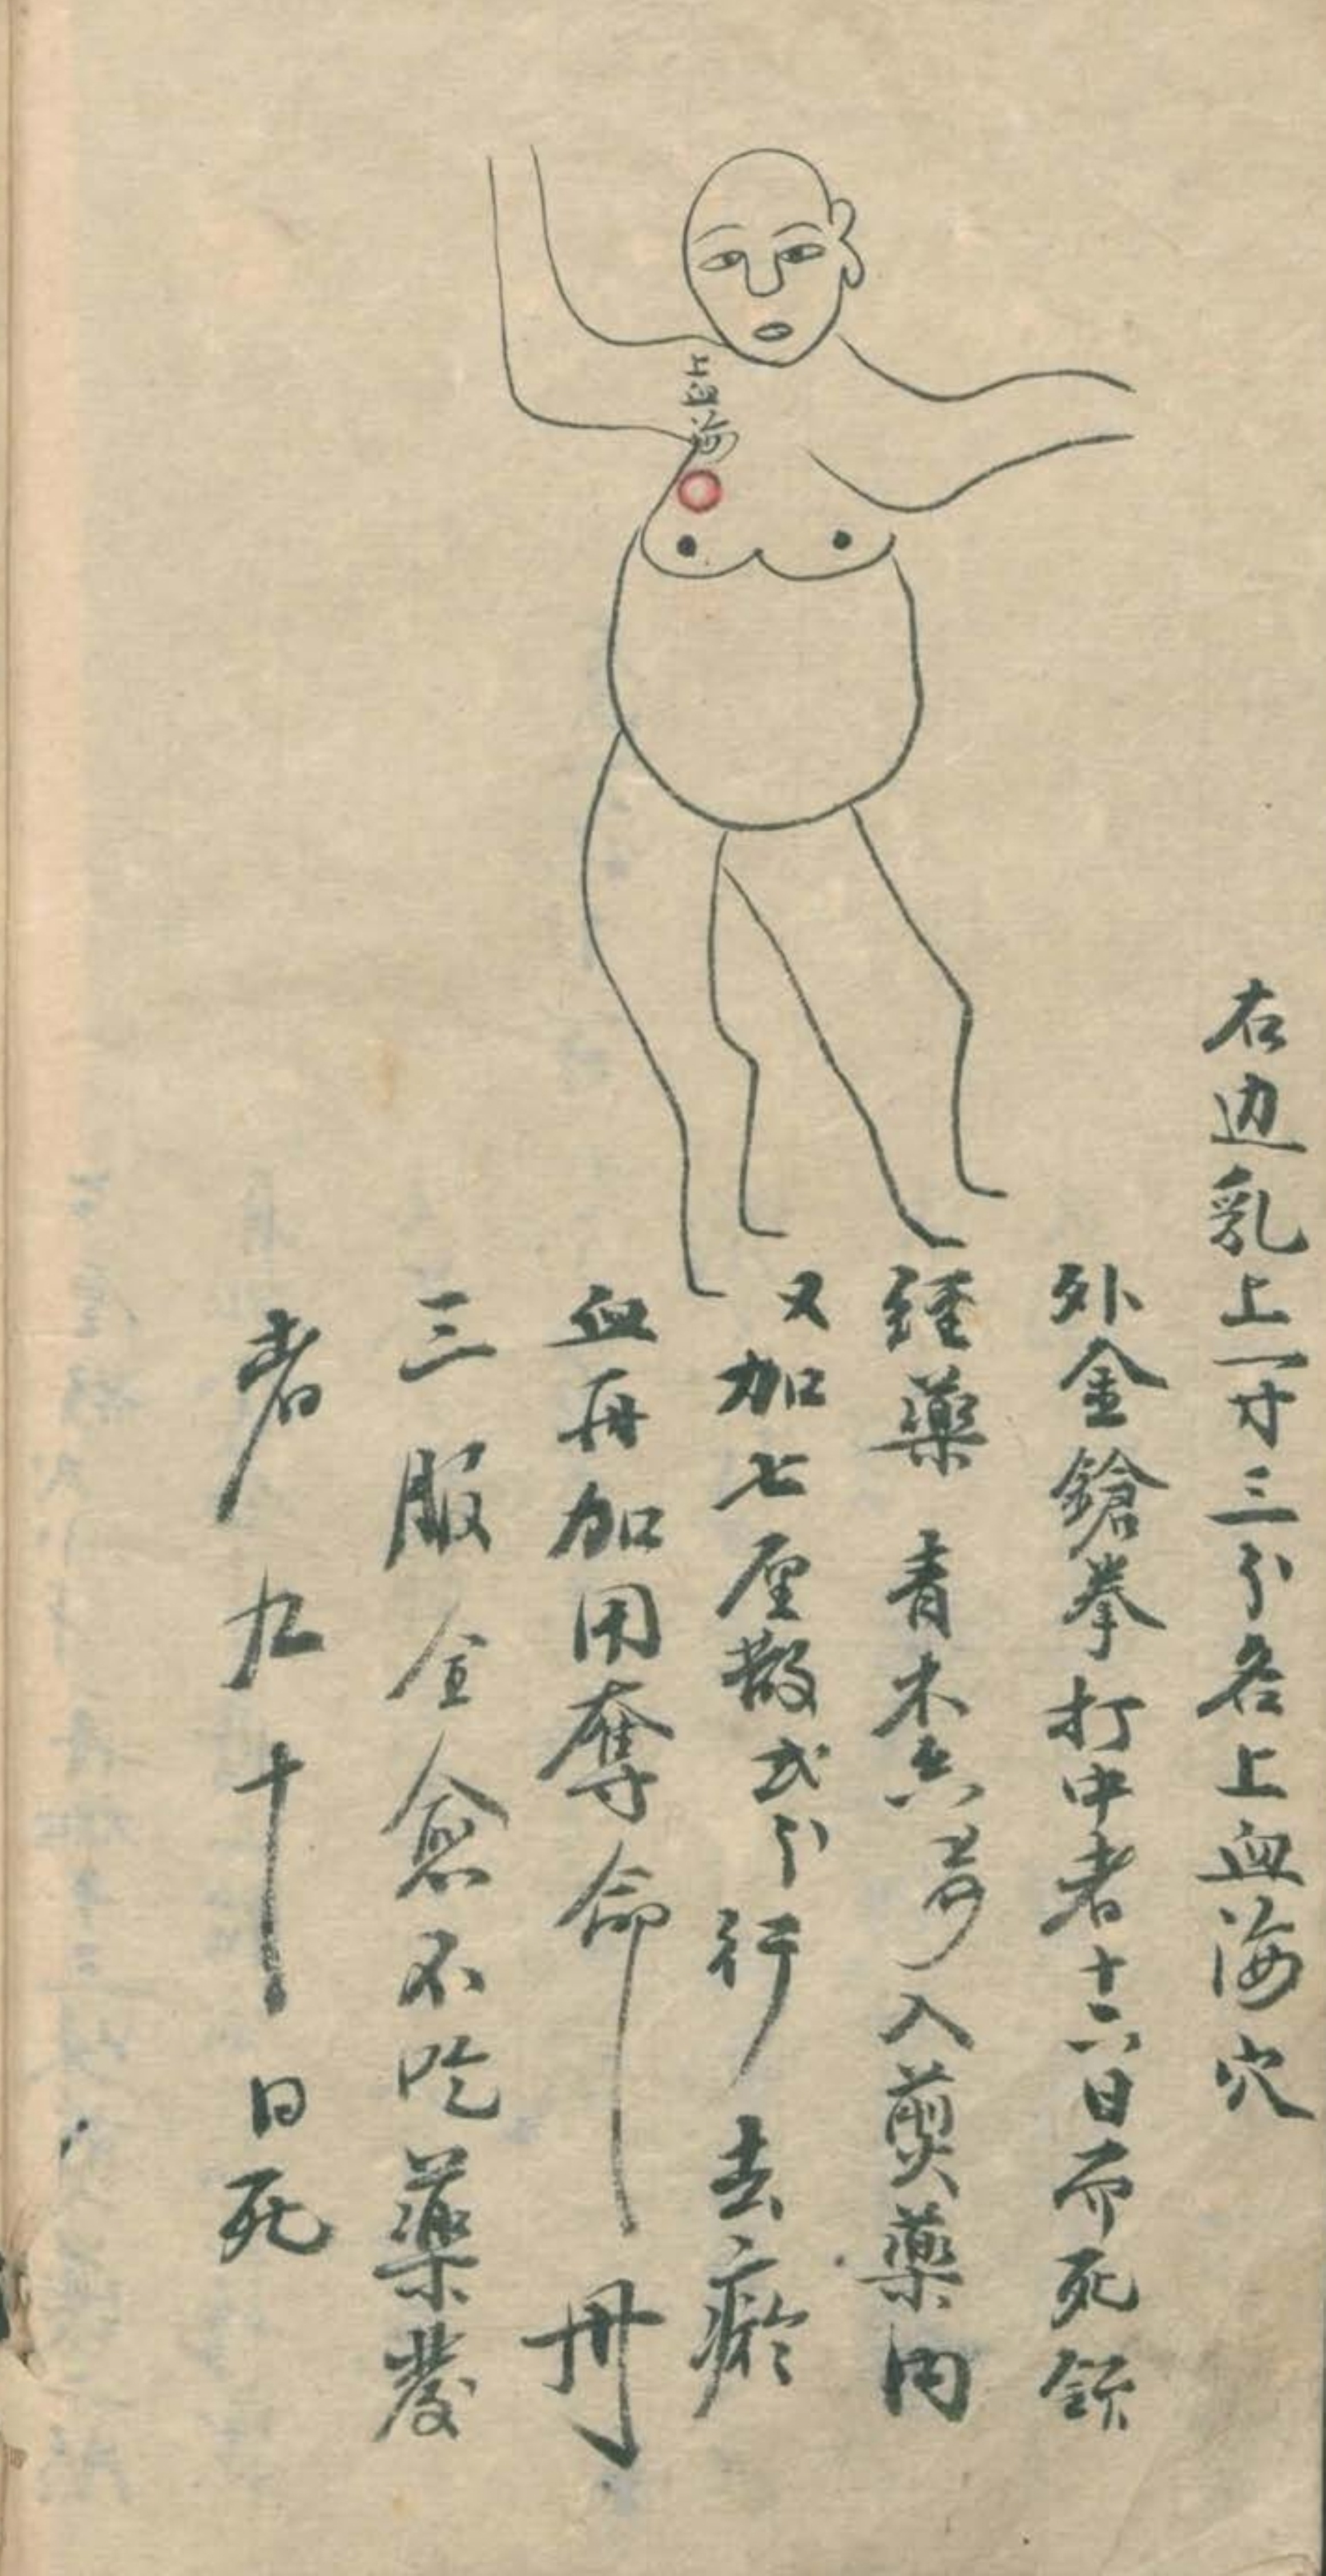 上血海
右边乳上一寸三分名上血海穴
外金鎗拳打中者十六日而死
經藥 青木入煎藥内
又加七厘散弍分行去瘀
血再加用奪命丹
三服全愈不吃藥發
者九十日死